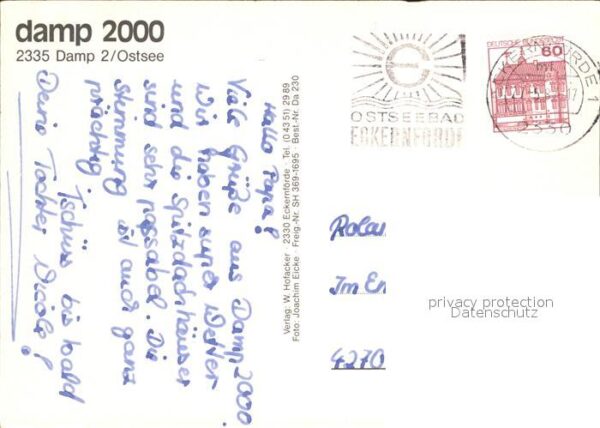 damp 2000
2335 Damp 2/Ostsee
Hallo Papa!
Viele Grüße aus Damp 2000.
Wir haben super Wetter
und die Spitzdachhäuser
sind sehr passabel. Die
Stimmung ist auch ganz
prächtig.
Tschüss bis bald
Deine Tochter Nicole!
Verlag: W. Hofacker · 2330 Eckernförde · Tel. (0 43 51) 29 89
Foto: Joachim Eicke · Freig.-Nr. SH 369-1695 · Best.-Nr. Da 230
OSTSEEBAD
ECKERNFÖRDE
DEUTSCHE BUNDESPOST
60
ECKERNFÖRDE 1
2330
Im
4270
privacy protection
Datenschutz